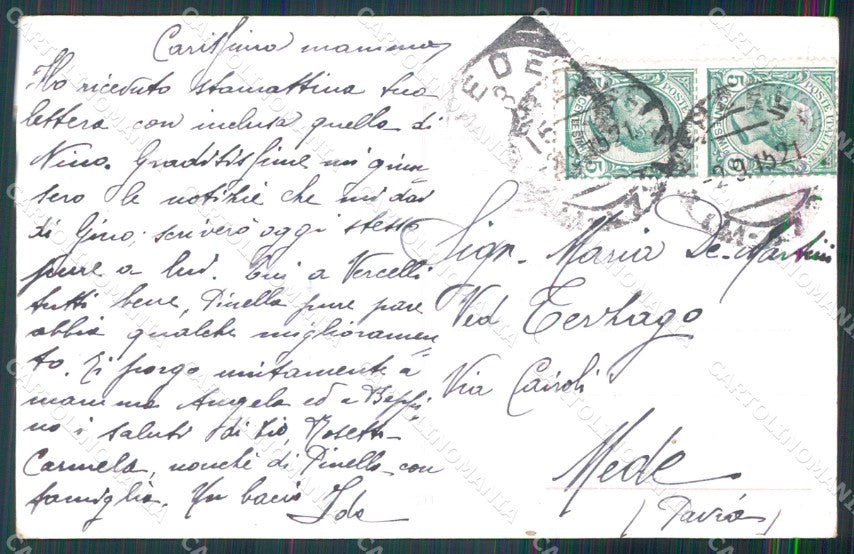 Carissima mamma,
Ho ricevuto stamattina tua
lettera con inclusa quella di
Nino. Graditissime mi giun=
sero le notizie che mi dai
di Gino; scriverò oggi stesso
pure a lui. Qui a Vercelli
tutti bene, Pinella pure pare
abbia qualche miglioramen=
to. Ti porgo unitamente a
mamma Angela ed a Beppi=
no i saluti di Zio, Rosetta
Carmela, nonchè di Pinella con
famiglia. Un bacio Ida
Sign. Maria De-Martini
Ved Terzago
Via Cairoli
Mede
(Pavia)
POSTE ITALIANE
5
5
POSTE ITALIANE
MEDE
-2.9.15 21
CARTOLINOMANIA